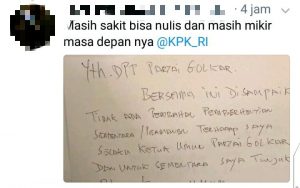 4 jam
Masih sakit bisa nulis dan masih mikir
masa depan nya @KPK_RI
Yth. DPP PARTAI GOLKAR.
BERSAMA INI DISAMPAIK
TIDAK ADA PEMBERHENTIAN
SEMENTARA TERHADAP SAYA
SELAKU KETUA UMUM PARTAI GOLKAR
DAN UNTUK SEMENTARA SAYA TUNJUK